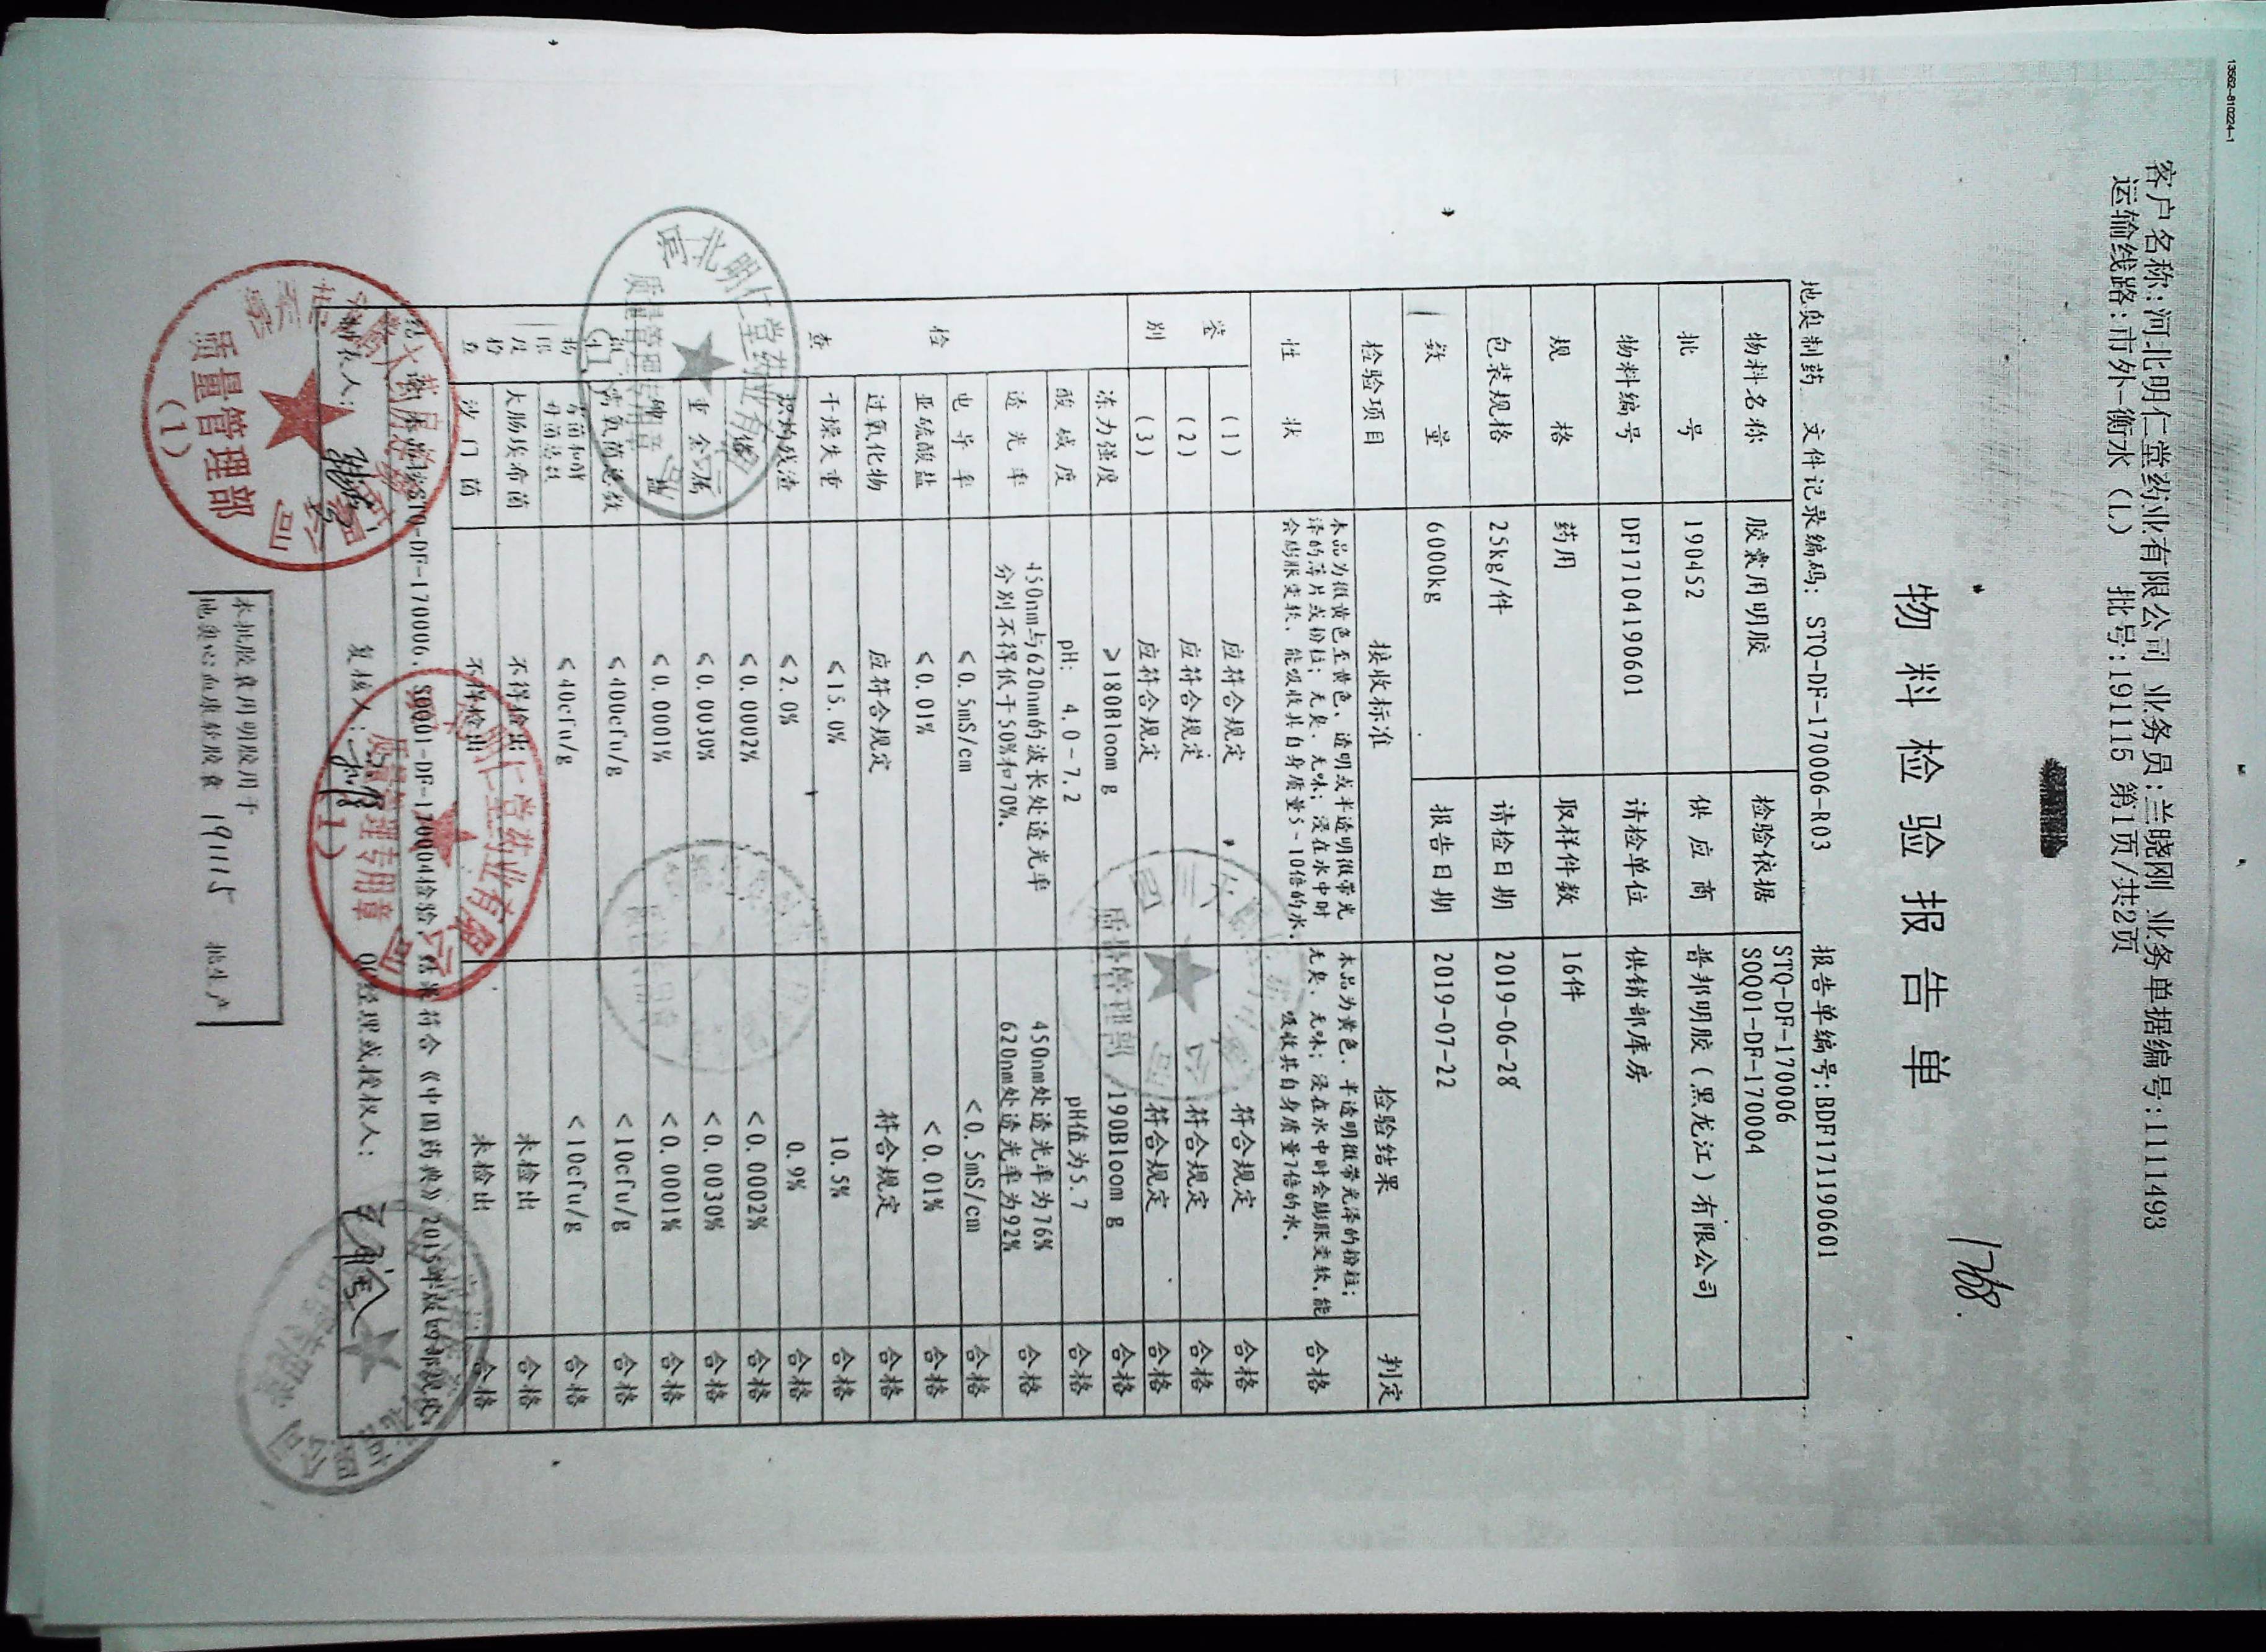 13562-810224-1
客户名称:河北明仁堂药业有限公司 业务员:兰晓刚 业务单据编号:1111493
运输线路:市外-衡水（L） 批号:191115 第1页/共2页
1768.
物料检验报告单
地奥制药 文件记录编码: STQ-DF-170006-R03 报告单编号:BDF171190601
物料名称 胶囊用明胶 检验依据 STQ-DF-170006
SOQ01-DF-170004
批号 190452 供应商 普邦明胶（黑龙江）有限公司
物料编号 DF17104190601 请检单位 供销部库房
规格 药用 取样件数 16件
包装规格 25kg/件 请检日期 2019-06-28
数量 6000kg 报告日期 2019-07-22
检验项目 接收标准 检验结果 判定
性状 本品为微黄色至黄色、透明或半透明微带光 本品为黄色、半透明微带光泽的粉粒; 合格
泽的薄片或粉粒; 无臭、无味; 浸在水中时 无臭、无味; 浸在水中时会膨胀变软、能
会膨胀变软、能吸收其自身质量5-10倍的水. 吸收其自身质量7倍的水.
鉴别 (1) 应符合规定 符合规定 合格
(2) 应符合规定 符合规定 合格
(3) 应符合规定 符合规定 合格
检查 冻力强度 >180Bloom g 190Bloom g 合格
酸碱度 pH: 4.0-7.2 pH值为5.7 合格
透光率 450nm与620nm的波长处透光率 450nm处透光率为76% 合格
分别不得低于50%和70%. 620nm处透光率为92%
电导率 <0.5mS/cm <0.5mS/cm 合格
亚硫酸盐 <0.01% <0.01% 合格
过氧化物 应符合规定 符合规定 合格
干燥失重 <15.0% 10.5% 合格
炽灼残渣 <2.0% 0.9% 合格
铬 <0.0002% <0.0002% 合格
重金属 <0.0030% <0.0030% 合格
砷盐 <0.0001% <0.0001% 合格
需氧菌总数 <400cfu/g <10cfu/g 合格
霉菌和酵 <40cfu/g <10cfu/g 合格
母菌总数
大肠埃希菌 不得检出 未检出 合格
沙门菌 不得检出 未检出 合格
STQ-DF-170006、SOQ01-DF-170004检验, 结果符合《中国药典》2015年版四部规定.
制表人: 复核人: QC经理或授权人:
本批胶囊用明胶用于
地奥心血康软胶囊 191115 批生产
河北明仁堂药业有限
质量管理部
(1)
仁堂药业有限公司
质量管理专用章
(1)
质量管理部